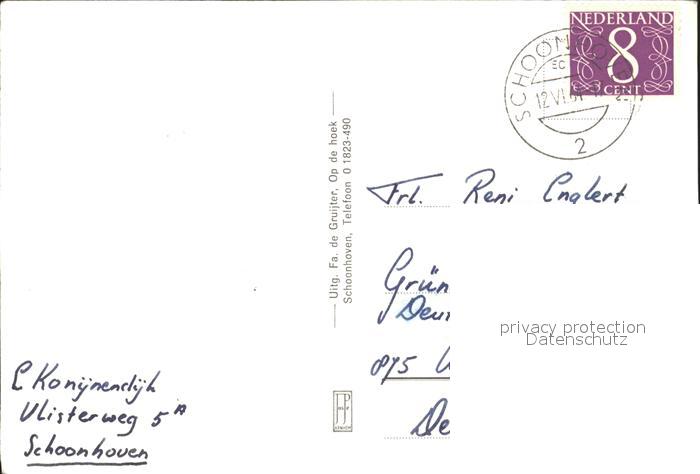 NEDERLAND
8
CENT
SCHOONHOVEN
2
Frl. Reni Englert
Grün
Deu
875
De
privacy protection
Datenschutz
Uitg. Fa. de Gruijter, Op de hoek
Schoonhoven, Telefoon 0 1823-490
C Konijnendijk
Vlisterweg 5 A
Schoonhoven